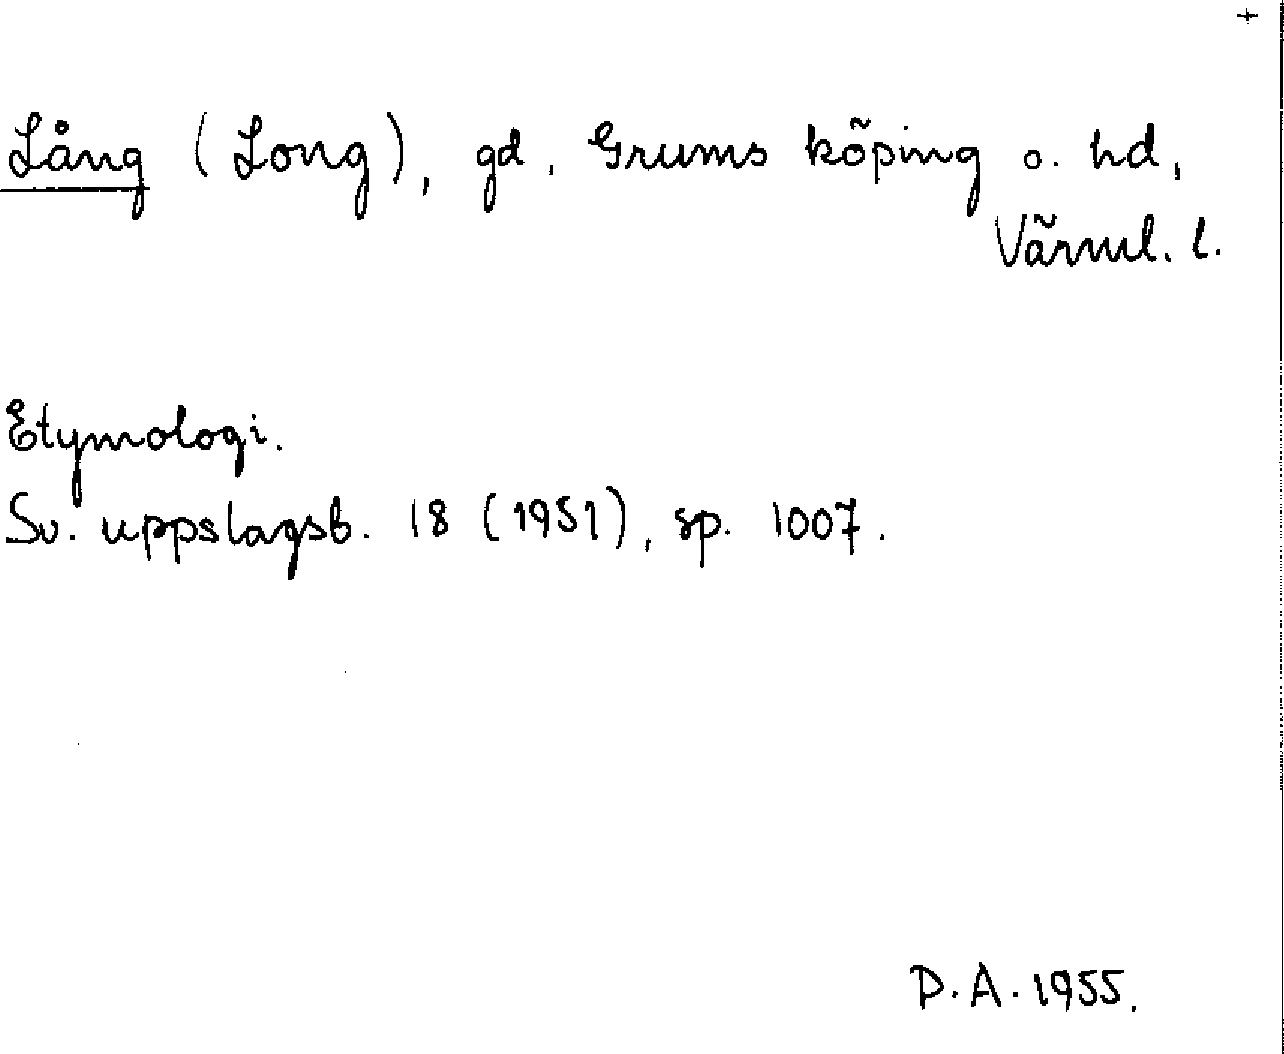 +
Lång (Long), gd, Grums köping o. hd,
Värml. l.
Etymologi.
Sv. uppslagsb. 18 (1951), sp. 1007.
D.A. 1955.